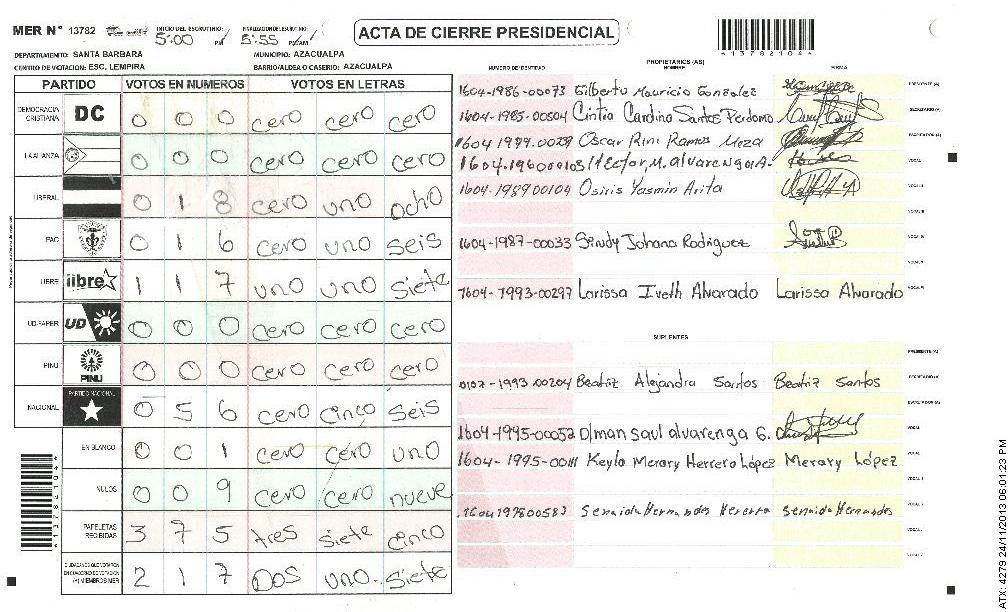 MER N° 13782 INICIO DEL ESCRUTINIO: 5:00 PM FINALIZACION ESCRUTINIO: 5:55 PM/AM
ACTA DE CIERRE PRESIDENCIAL
4137821044
DEPARTAMENTO: SANTA BARBARA MUNICIPIO: AZACUALPA
CENTRO DE VOTACION: ESC. LEMPIRA BARRIO/ALDEA O CASERIO: AZACUALPA
PARTIDO VOTOS EN NUMEROS VOTOS EN LETRAS
DEMOCRACIA CRISTIANA DC 0 0 0 cero cero cero
LA ALIANZA 0 0 0 cero cero cero
LIBERAL 0 1 8 cero uno ocho
PAC 0 1 6 cero uno seis
LIBRE libre 1 1 7 uno uno siete
UD-FAPER UD 0 0 0 cero cero cero
PINU PINU 0 0 0 cero cero cero
NACIONAL PARTIDO NACIONAL 0 5 6 cero cinco seis
EN BLANCO 0 0 1 cero cero uno
NULOS 0 0 9 cero cero nueve
PAPELETAS RECIBIDAS 3 7 5 tres siete cinco
CIUDADANOS QUE VOTARON EN CUADERNO DE VOTACION (+) MIEMBROS MER 2 1 7 Dos uno. siete
PROPIETARIOS (AS)
NUMERO DE IDENTIDAD NOMBRE FIRMA
1604-1986-00073 Gilberto Mauricio Gonzalez PRESIDENTE (A)
1604-1985-00504 Cintia Carolina Santos Perdomo SECRETARIO (A)
1604 1979.0029 Oscar Rini Ramos Meza ESCRUTADOR (A)
1604.196000103 Hector, M. alvarenga A. VOCAL
1604-1989 00104 Osiris Yasmin Arita
1604-1987-00033 Sindy Johana Rodriguez
1604-1993-00297 Larissa Iveth Alvarado Larissa Alvarado
SUPLENTES
PRESIDENTE (A)
0107-1993-00204 Beatriz Alejandra Santos Beatriz Santos SECRETARIO (A)
ESCRUTADOR (A)
1604-1995-00052 Dilman Saul alvarenga G. VOCAL
1604-1995-00111 Keyla Merary Herrera López Merary López
1604197800583 Senaida Hernandes Hererra Senaida Hernandes
ATX: 4279 24/11/2013 06:01:23 PM